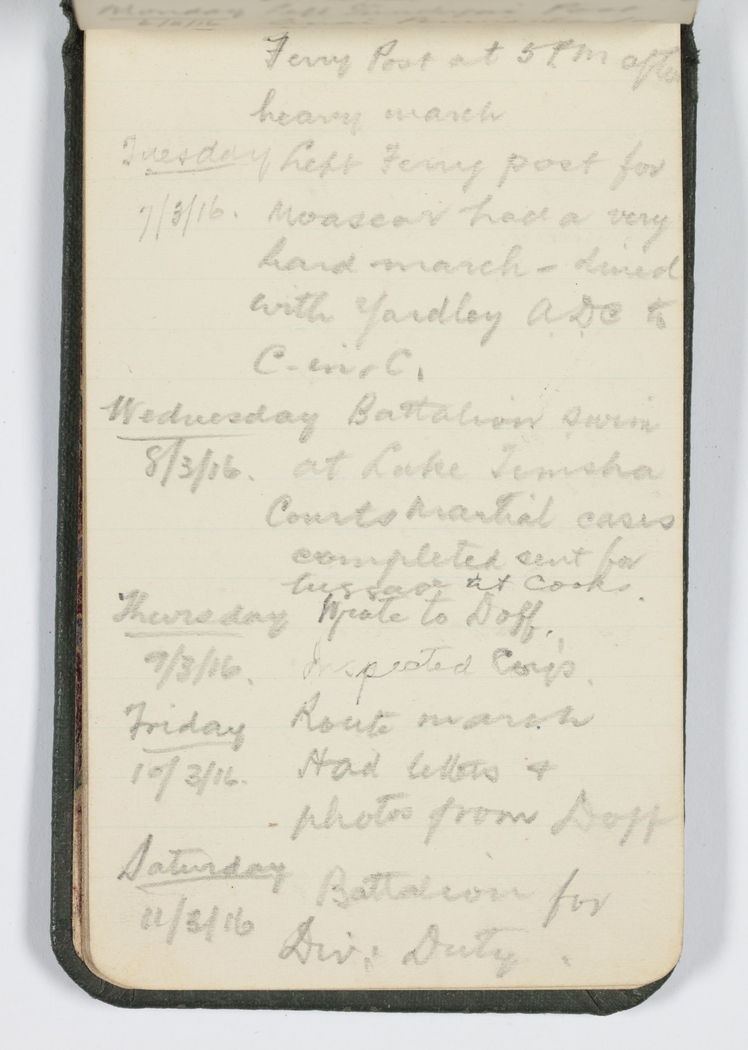 Monday left
6/3/16
Ferry Post at 5 P.M after
heavy march
Tuesday Left Ferry post for
7/3/16. Moascar had a very
hard march - dined
with Yardley A.D.C to
C-in-C.
Wednesday Battalion swim
8/3/16. at Lake Timsha
Courts Martial cases
completed sent for
at Cooks.
Thursday Wrote to Doff.
9/3/16. Inspected Coys.
Friday Route march
10/3/16. Had letters &
photos from Doff
Saturday Battalion for
11/3/16 Div: Duty.